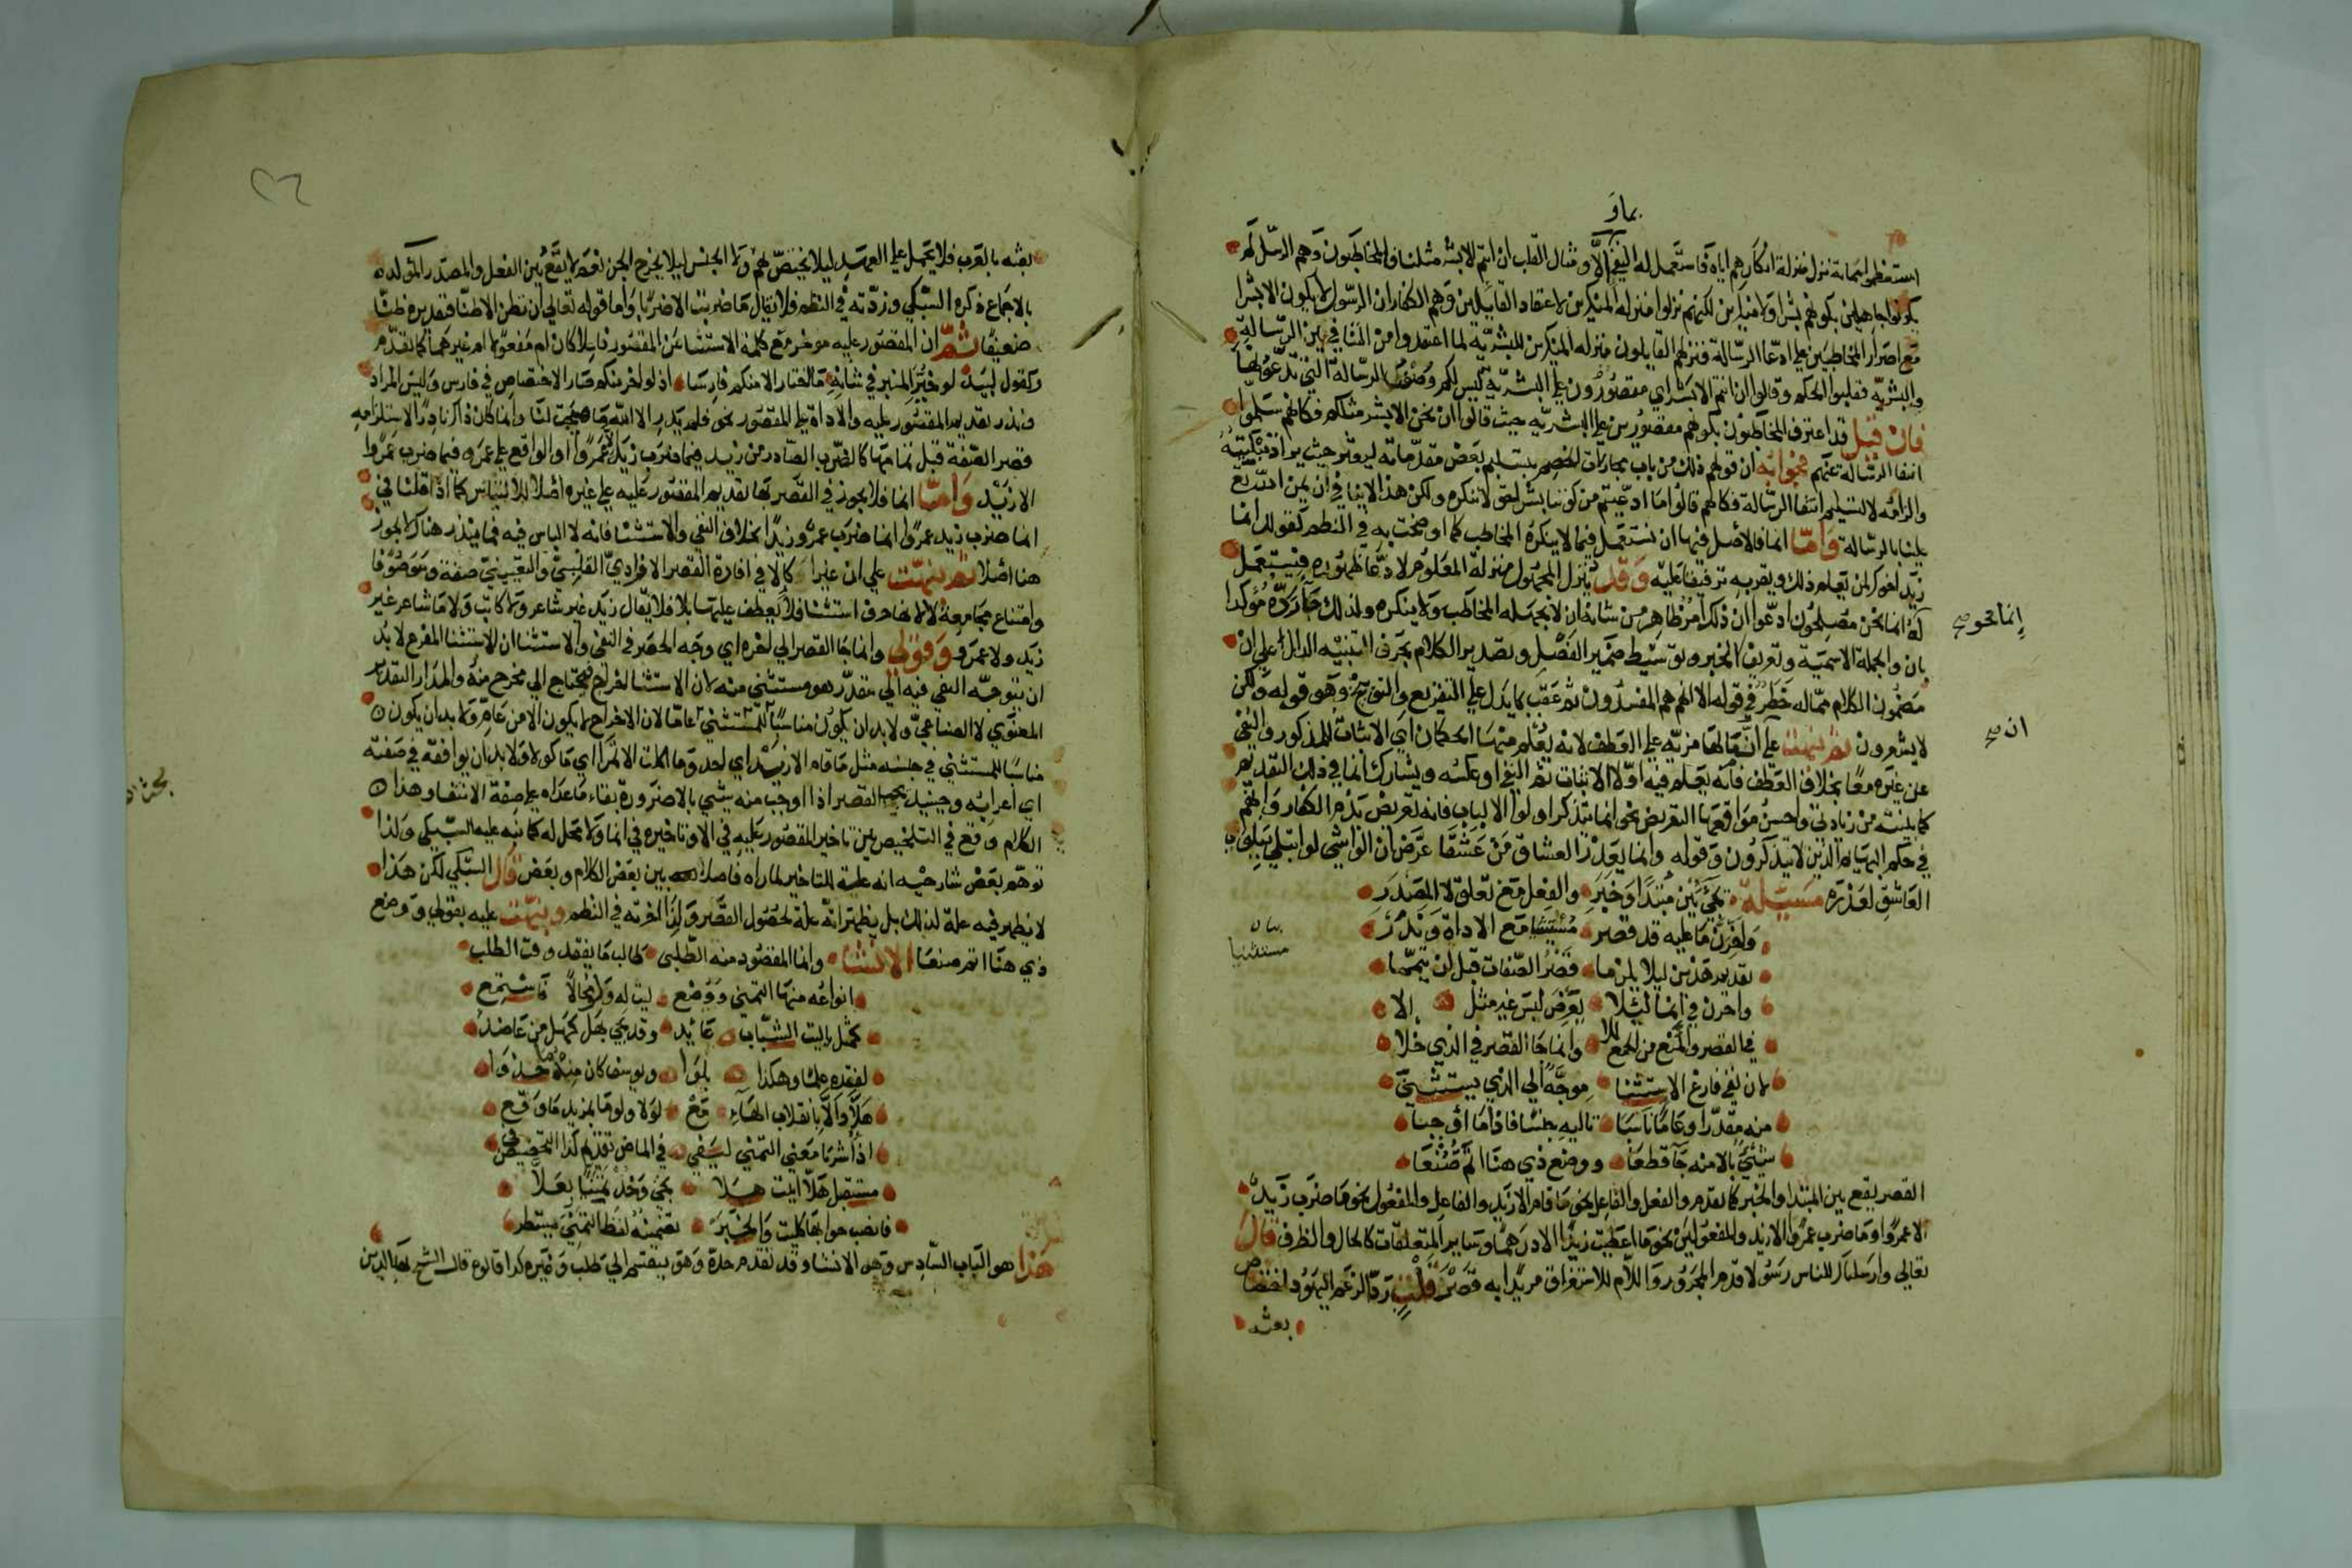 بما و
استعظموا مماته نزل منزلة انكارهم اياه فاستعمل له النفي والا ومثال القلب ان انتم الا بشر مثلنا فالمخاطبون وهم الرسل لم
يكونوا جاهلين بكونهم بشرا ولا منكرين لكنهم نزلوا منزلة المنكرين لاعتقاد القايلين وهم الكفار ان الرسول لا يكون الا بشرا
مع اصرار المخاطبين على ادعا الرسالة فنزلهم القايلون منزلة المنكرين للبشرية لما اعتقدوا من التنافي بين الرسالة
والبشرية فقلبوا الحكم وقالوا ان انتم الا بشر اي مقصورون على البشرية ليس لكم وصف الرسالة التي تدعونها
فان قيل قد اعترف المخاطبون بكونهم مقصورين على البشرية حيث قالوا ان نحن الا بشر مثلكم فكانهم سلموا
انتفا الرسالة عنهم فجوابه ان قولهم ذلك من باب مجاراة الخصم بتسليم بعض مقدماته ليعثر حيث يراد تبكيته
والزامه لا لتسليم انتفا الرسالة فكانهم قالوا ما ادعيتم من كوننا بشر الحق لا ننكره ولكن هذا لا ينافي ان يمن الله تع
علينا بالرسالة واما انما فالاصل فيها ان تستعمل فيما لا ينكره المخاطب كما اوضحت به في النظم كقولك انما
زيد اخوك لمن يعلم ذلك ويقر به ترقيقا عليه وقد ينزل المجهول منزلة المعلوم لادعا ظهوره فيستعمل
له انما نحن مصلحون ادعوا ان ذلك امر ظاهر من شانه ان لا يجهله المخاطب ولا ينكره ولذلك جا رده مؤكدا
بان والجملة الاسمية وتعريف الخبر وتوسيط ضمير الفصل وتصدير الكلام بحرف التنبيه الدال على ان
مضمون الكلام مما له خطر في قوله الا انهم هم المفسدون ثم عقب بما يدل على التقريع والتوبيخ وهو قوله ولكن
لا يشعرون ثم نبهت على ان لها مزية على العطف لانه يعلم منها الحكمان اي الاثبات للمذكور والنفي
عن غيره معا بخلاف العطف فانه يعلم فيه اولا الاثبات ثم النفي او عكسه ويشارك انما في ذلك التقديم
كما بينته من زيادتي واحسن مواقعها التعريض نحو انما يتذكر اولوا الالباب فانه تعريض بذم الكفار وانهم
في حكم البهايم الذين لا يتذكرون وقوله وانما يعذر العشاق من عشقا عرض ان الواشي لو ابتلي ببلوى
العاشق لعذره مسئلة تجي بين مبتدا وخبر والفعل مع تعلق لا المصدر
واخرن ما عليه قد قصر مستثنيا مع الاداة وندر
تقديم هذين ليلا يلزما قصر الصفات قبل ان يتمما
واخرن في انما ليلا يعرض لبس غير مثل الا
في القصر والمنع من الجمع للا وانما جا القصر في الذي خلا
لان نفي فارغ الاستثنا موجه الى الذي يستثنى
منه مقدرا وعاما ناسبا تاليه جنسا فاذا ما اوجبا
شيئ بالا منه جا قطعا ووضع ذي هنا اثم صنعا
القصر يقع بين المبتدا والخبر كما تقدم والفعل والفاعل نحو ما قام الا زيد والفاعل والمفعول نحو ما ضرب زيد
الا عمروا وما ضرب عمروا الا زيد والمفعولين نحو ما اعطيت زيدا الا درهما وساير المتعلقات كالحال والظرف قال
تعالى وارسلناك للناس رسولا قدم المجرور واللام للاستغراق مريدا به قصر قلب ردا لزعم اليهود اختصاص
بعثه
إنما نحو صح
ان صح
بيان
مستثنيا
بعثه بالعرب فلا يحمل على العهد ليلا يختص بهم ولا الجنس ليلا يخرج الجن نعم لا يقع بين الفعل والمصدر المؤكد
بالاجماع ذكره السبكي وزدته في النظم فلا يقال ما ضربت الا ضربا واما قوله تعالى ان نظن الا ظنا فتقديره ظنا
ضعيفا ثم ان المقصور عليه موخر مع كلمة الاستثنا عن المقصور فاعلا كان ام مفعولا ام غيرهما كما تقدم
وكقول لبيد لو خير المنبر في شانه ما اختار الا منكم فارسا اذ لو اخر منكم صار الاختصاص في فارس وليس المراد
وندر تقديم المقصور عليه والاداة على المقصور نحو فلم يدر الا الله ما هيجت لنا وانما كان ذاك نادرا لاستلزامه
قصر الصفة قبل تمامها كالضرب الصادر من زيد فيما ضرب زيد الا عمروا او الواقع على عمرو فيما ضرب عمروا
الا زيد واما انما فلا يجوز في القصر بها تقديم المقصور عليه على غيره اصلا للالتباس كما اذا قلنا في
انما ضرب زيد عمروا انما ضرب عمرو زيدا بخلاف النفي والاستثنا فانه لا الباس فيه فما يندر هناك لا يجوز
هنا اصلا ثم نبهت على ان غيرا كالا في افادة القصر الافرادي القلبي والتعييني صفة وموصوفا
وامتناع مجامعة لا لانها حرف استثنا فلا يعطف عليها بلا فلا يقال زيد غير شاعر ولا كاتب ولا ما شاعر غير
زيد ولا عمرو وقولي وانما جا القصر الى اخره اي وجه الحصر في النفي والاستثنا ان الاستثنا المفرغ لا بد
ان يتوجه النفي فيه الى مقدر هو مستثنى منه لان الاستثنا اخراج فيحتاج الى مخرج منه والمراد التقدير
المعنوي لا الصناعي ولا بد ان يكون مناسبا للمستثنى عاما لان الاخراج لا يكون الا من عام ولا بد ان يكون
مناسبا للمستثنى في جنسه مثل ما قام الا زيد اي احد وما اكلت الا تمرا اي ماكولا ولا بد ان يوافقه في صفته
اي اعرابه وحينيذ يجب القصر اذا اوجب منه شي بالا ضرورة بقاء ما عداه على صفة الانتفا وهذا
الكلام وقع في التلخيص بين تاخير المقصور عليه في الا وتاخيره في انما ولا محل له كما نبه عليه السبكي ولذا
توهم بعض شارحيه انه علة للتاخير لما راه فاصلا بين بعض الكلام وبعض قال السبكي لكن هذا
لا يظهر فيه علة لذلك بل يظهر انه علة لحصول القصر ولذا اخرته في النظم ونبهت عليه بقولي ووضع
ذي هنا اثم صنعا الانشا وانما المقصود منه الطلبي طالب ما يفقد وقت الطلب
انواعه منها التمني ووضع ليت له ولو محالا فاستمع
كمثل ليت الشباب عايد وقد تجي بهل كهل من عاضد
لفقده علما وهكذا بلوا ويوسف كان منها حذوا
هلا والا بانقلاب الهاء مع لولا ولوما بمزيد ما وقع
اذ اشربا معنى التمني ليفي في الماض تنديم كذا التحضيض في
مستقبل هلا اتيت هلا تجي وخذ تمنيا بعلا
فانصب جوابها كليت والخبر تضمينه لفظ التمني يستطر
هذا هو الباب السادس وهو الانشا وقد تقدم حده وهو ينقسم الى طلب وغيره كذا قالوه قال الشيخ بها الدين